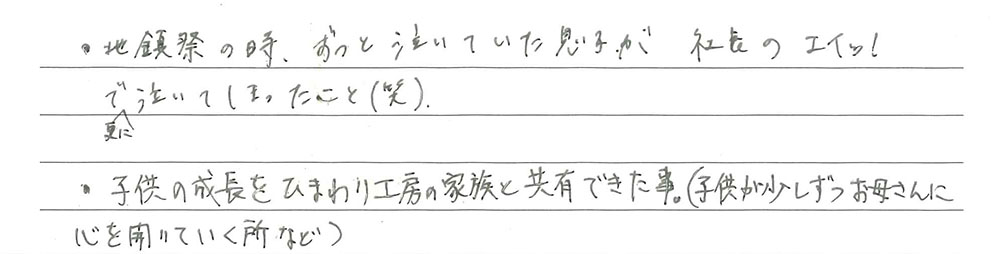 ・地鎮祭の時、ずっと泣いていた息子が 社長の エイッ!
で泣いてしまったこと(笑).
更に
・子供の成長をひまわり工房の家族と共有できた事。(子供が少しずつお母さんに
心を開いていく所など)